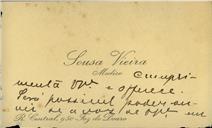 Sousa Vieira
Medico
cumpri-
menta V. e offerece.
Será possivel poder ou-
vir se a voz de V. em
R. Central, 950 Foz do Douro